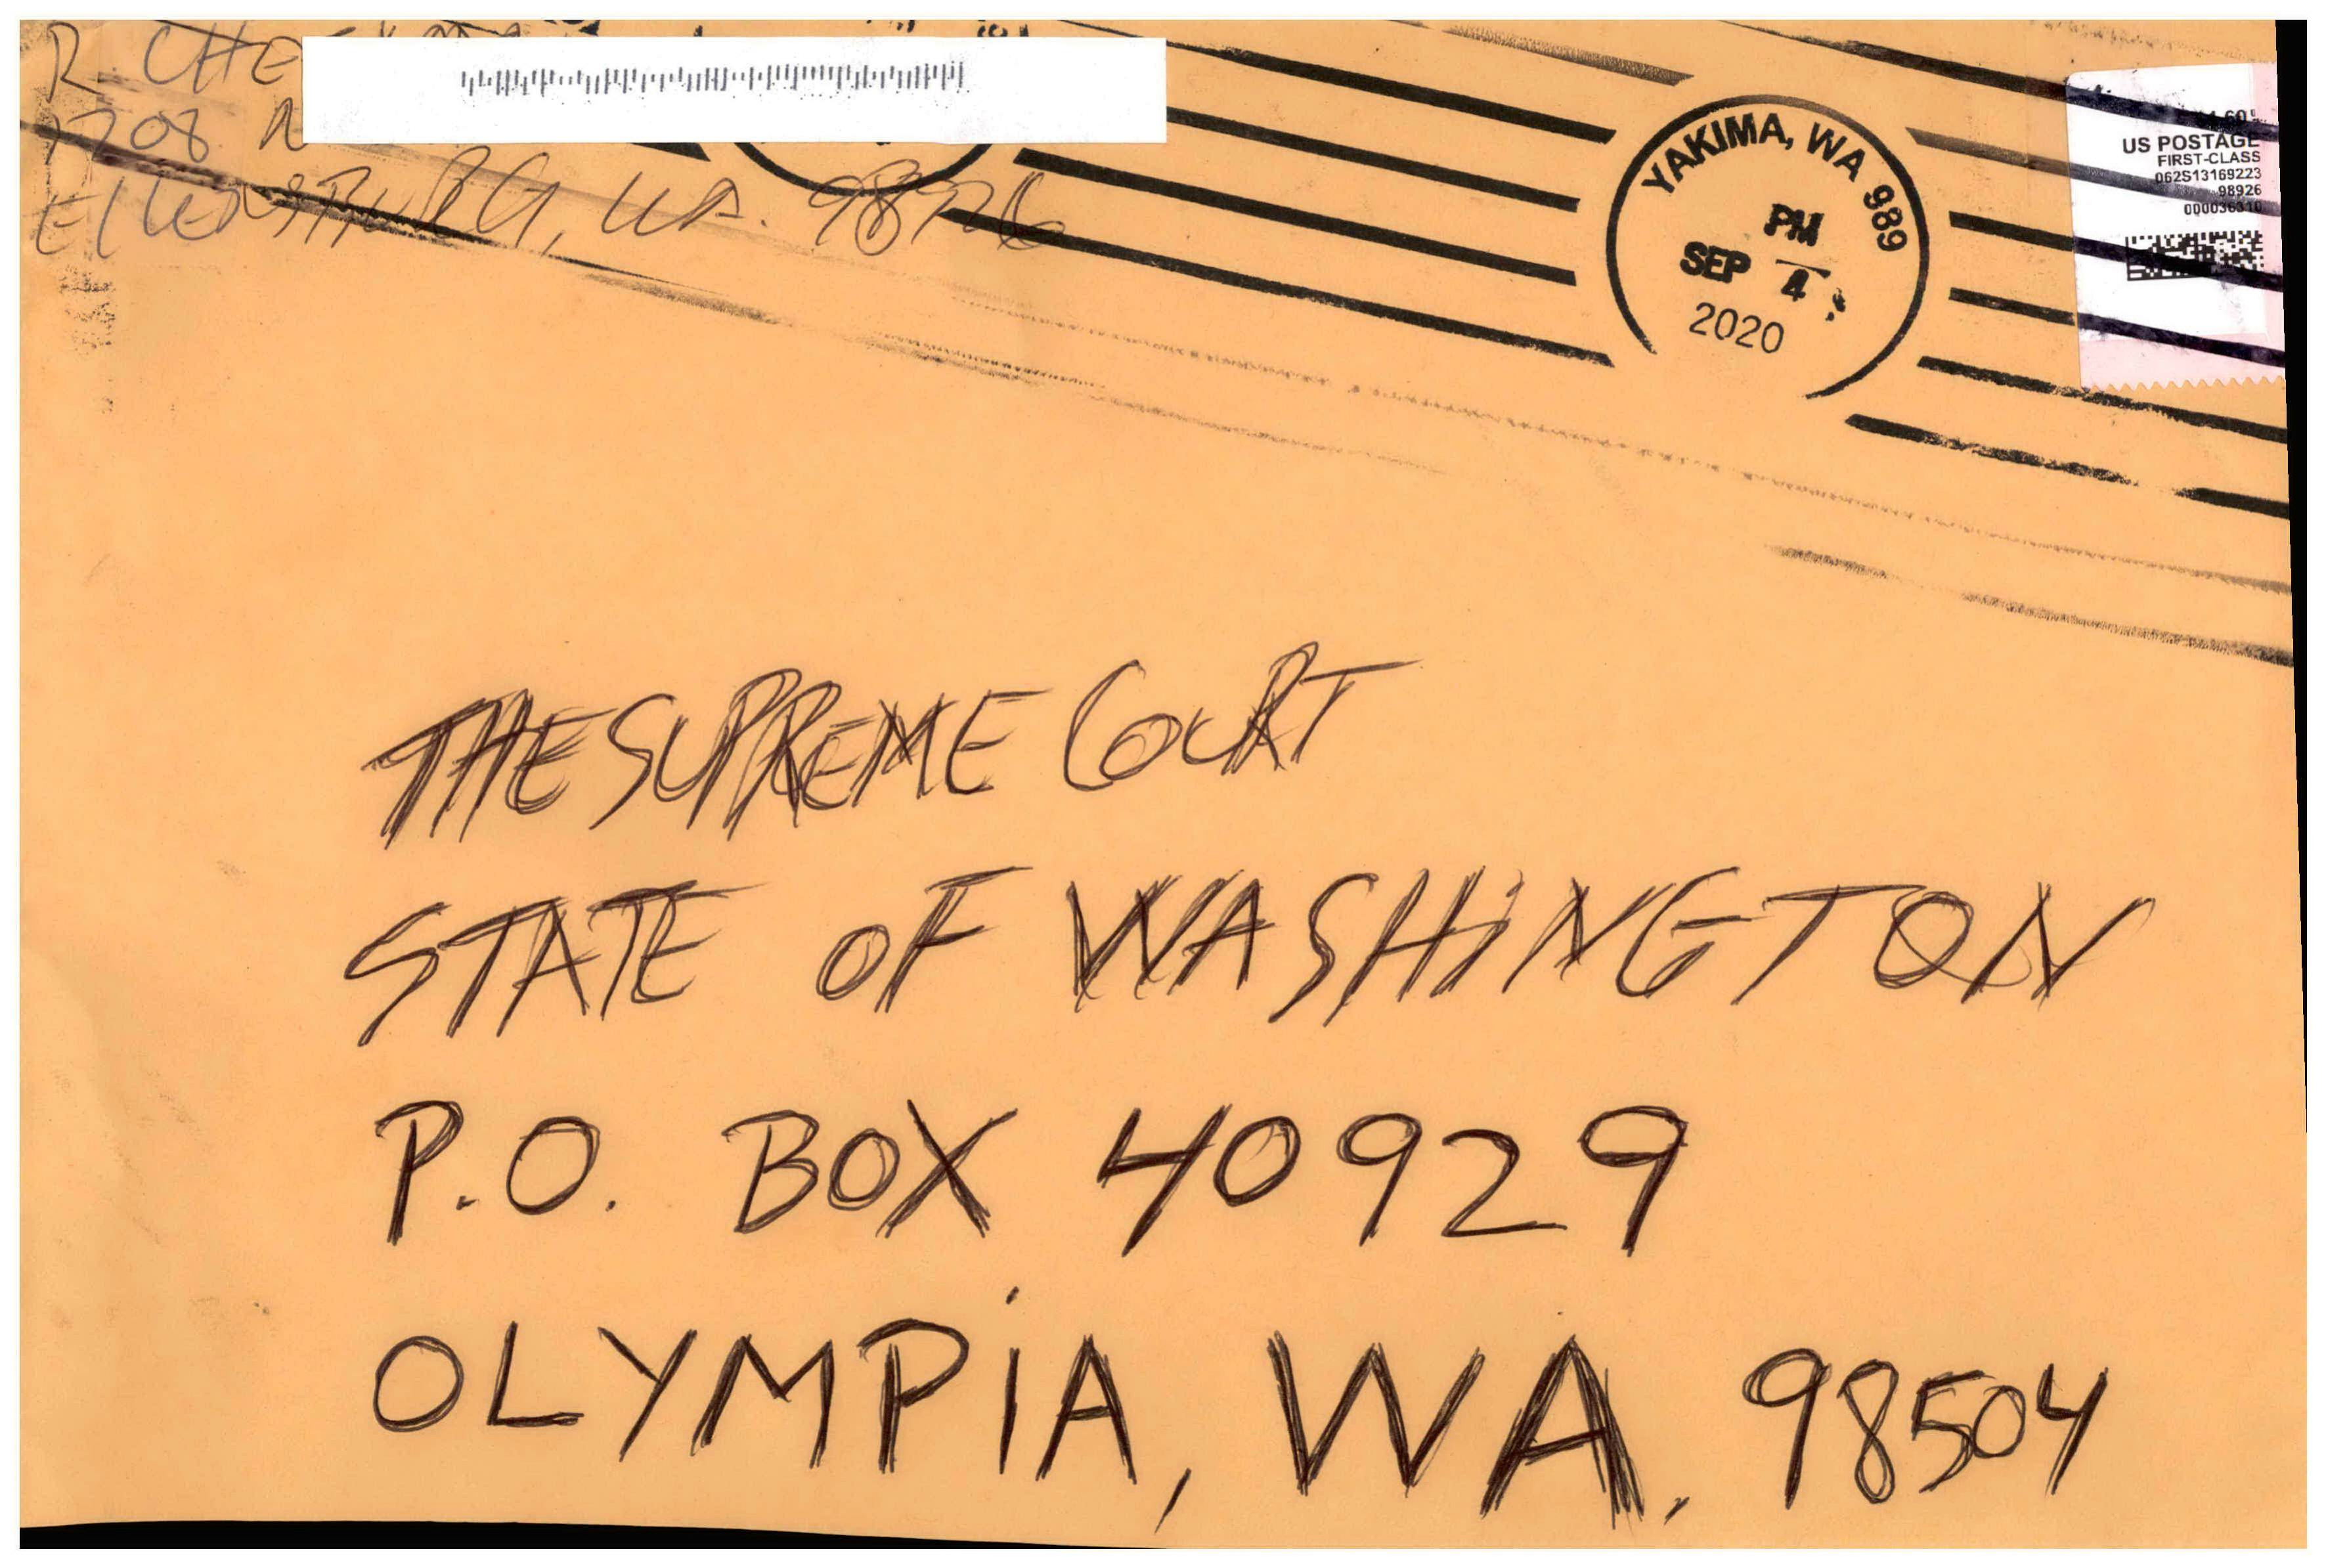 R. CHE
1708 N
EllENSBURG, WA. 98926
YAKIMA, WA 989
PM
SEP 4
2020
US POSTAGE
FIRST-CLASS
062S13169223
98926
000036310
THE SUPREME COURT
STATE OF WASHINGTON
P.O. BOX 40929
OLYMPiA, WA. 98504